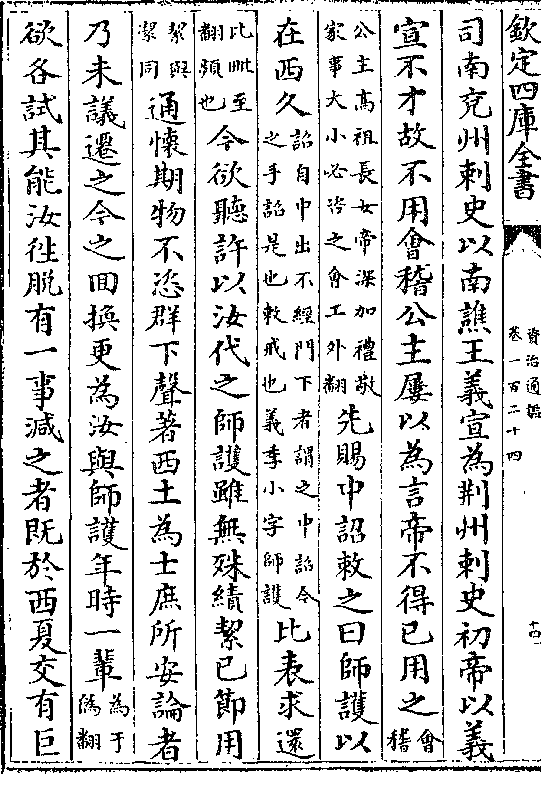 欽定四庫全書
資治通鑑
卷一百二十四
十四
司南兗州刺史以南譙王義宣為荆州刺史初帝以義
宣不才故不用會稽公主屢以為言帝不得已用之會稽
公主高祖長女帝深加禮敬家事大小必咨之會工外翻先賜中詔敕之曰師護以
在西久詔自中出不經門下者謂之中詔今之手詔是也敕戒也義季小字師護比表求還
比毗至翻頻也今欲聽許以汝代之師護雖無殊績絜已節用
絜與潔同通懷期物不恣群下聲著西土為士庶所安論者
乃未議遷之今之回換更為汝與師護年時一輩為于偽翻
欲各試其能汝往脱有一事減之者既於西夏交有巨